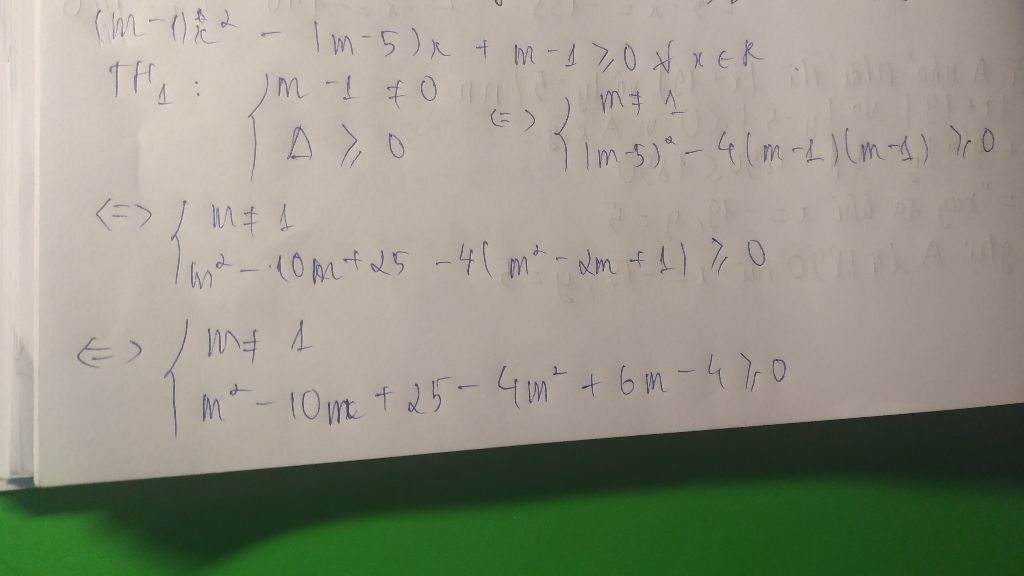 (m-1)x² - (m-5)x + m-1 ≥ 0 ∀ x ∈ R
TH₁ : { m -1 ≠ 0 <=> { m ≠ 1
Δ ≥ 0 (m-5)² - 4(m-1)(m-1) ≥ 0
<=> { m ≠ 1
m² - 10m + 25 - 4(m² - 2m + 1) ≥ 0
<=> { m ≠ 1
m² - 10m + 25 - 4m² + 6m - 4 ≥ 0